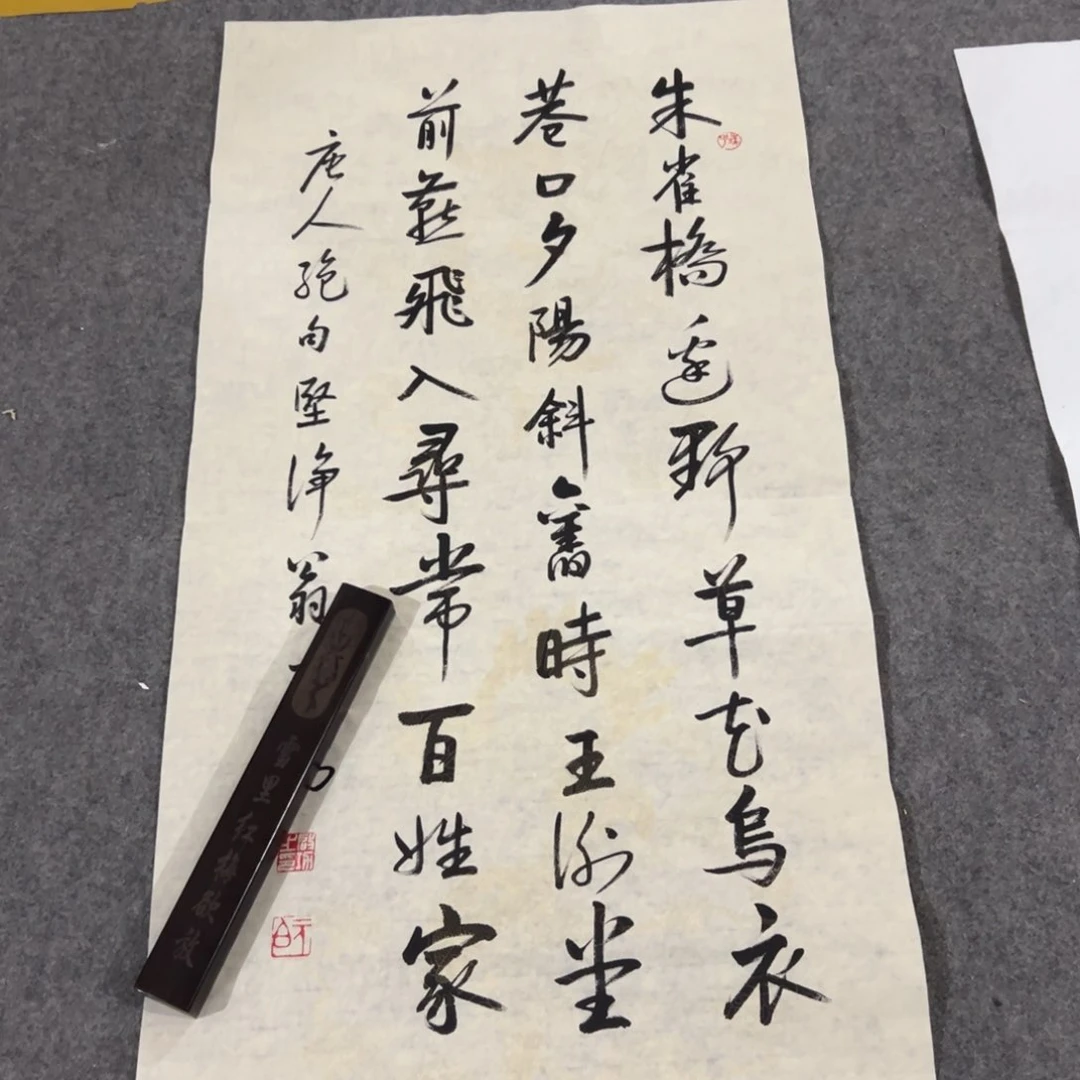 朱雀橋邊野草花烏衣
巷口夕陽斜舊時王謝堂
前燕飛入尋常百姓家
唐人絕句堅淨翁
雪里红梅欲放